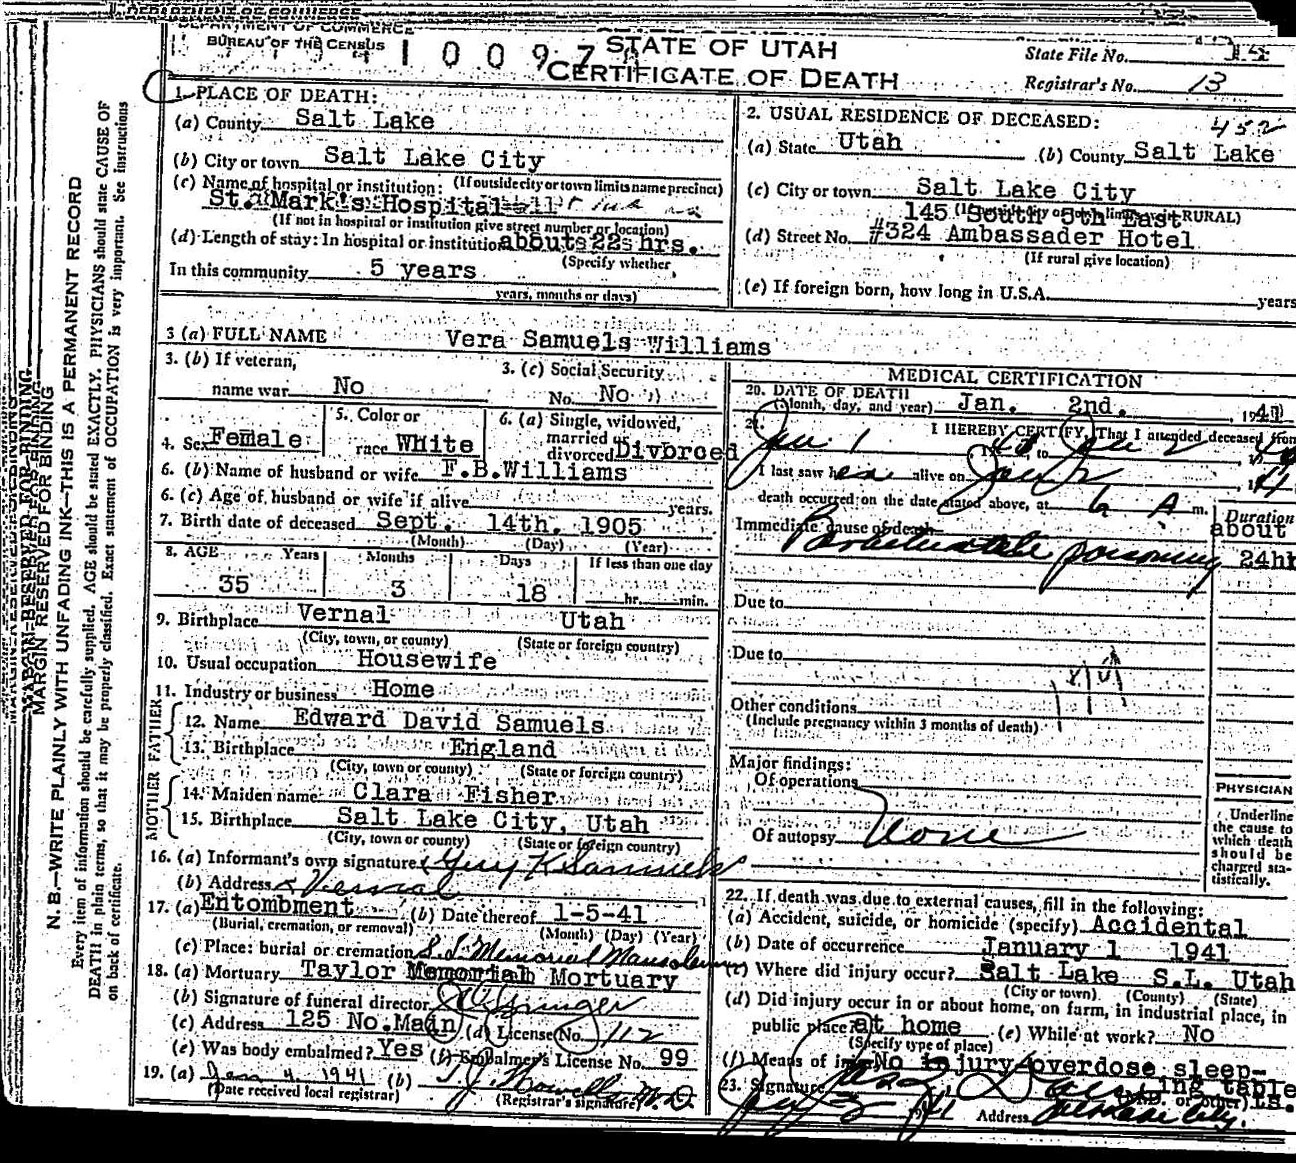 DEPARTMENT OF COMMERCE
BUREAU OF THE CENSUS
STATE OF UTAH
CERTIFICATE OF DEATH
State File No.
Registrar's No. 13
1. PLACE OF DEATH:
(a) County Salt Lake
(b) City or town Salt Lake City
(If outside city or town limits name precinct)
(c) Name of hospital or institution:
St. Mark's Hospital
(If not in hospital or institution give street number or location)
(d) Length of stay: In hospital or institution about 22 hrs.
(Specify whether
In this community 5 years
years, months or days)
2. USUAL RESIDENCE OF DECEASED:
452
(a) State Utah (b) County Salt Lake
(c) City or town Salt Lake City
145 South 5th East RURAL)
(d) Street No. #324 Ambassader Hotel
(If rural give location)
(e) If foreign born, how long in U.S.A. years
3 (a) FULL NAME Vera Samuels Williams
3. (b) If veteran,
name war No
3. (c) Social Security
No. No
4. Sex Female
5. Color or
race White
6. (a) Single, widowed,
married or
divorced Divorced
6. (b) Name of husband or wife F.B.Williams
6. (c) Age of husband or wife if alive years.
7. Birth date of deceased Sept. 14th. 1905
(Month) (Day) (Year)
8. AGE Years Months Days If less than one day
35 3 18 hr. min.
9. Birthplace Vernal Utah
(City, town, or county) (State or foreign country)
10. Usual occupation Housewife
11. Industry or business Home
FATHER
12. Name Edward David Samuels
13. Birthplace England
(City, town or county) (State or foreign country)
MOTHER
14. Maiden name Clara Fisher
15. Birthplace Salt Lake City, Utah
(City, town or county) (State or foreign country)
16. (a) Informant's own signature Guy K Samuels
(b) Address Vernal
17. (a) Entombment (b) Date thereof 1-5-41
(Burial, cremation, or removal) (Month) (Day) (Year)
(c) Place: burial or cremation S.L. Memorial Mausoleum
18. (a) Mortuary Taylor Memorial Mortuary
(b) Signature of funeral director
(c) Address 125 No. Main (d) License No. 112
(e) Was body embalmed? Yes (f) Embalmer's License No. 99
19. (a) Jan 4 1941 (b) M.D.
(Date received local registrar) (Registrar's signature)
MEDICAL CERTIFICATION
20. DATE OF DEATH
(Month, day, and year) Jan. 2nd. , 1941
21. I HEREBY CERTIFY, That I attended deceased from
Jan 1 to Jan 2
I last saw her alive on Jan 2
death occurred on the date stated above, at 6 A m.
Immediate cause of death
poisoning
Duration
about
24hr
Due to
Due to
Other conditions
(Include pregnancy within 3 months of death)
Major findings:
Of operations
Of autopsy None
PHYSICIAN
Underline
the cause to
which death
should be
charged sta-
tistically.
22. If death was due to external causes, fill in the following:
(a) Accident, suicide, or homicide (specify) Accidental
(b) Date of occurrence January 1 1941
(c) Where did injury occur? Salt Lake S.L. Utah
(City or town) (County) (State)
(d) Did injury occur in or about home, on farm, in industrial place, in
public place? at home (e) While at work? No
(Specify type of place)
(f) Means of injury No injury overdose sleep-
ing tablets.
23. Signature
(M.D. or other)
Address
MARGIN RESERVED FOR BINDING
N. B.—WRITE PLAINLY WITH UNFADING INK—THIS IS A PERMANENT RECORD
Every item of information should be carefully supplied. AGE should be stated EXACTLY. PHYSICIANS should state CAUSE OF
DEATH in plain terms, so that it may be properly classified. Exact statement of OCCUPATION is very important. See instructions
on back of certificate.